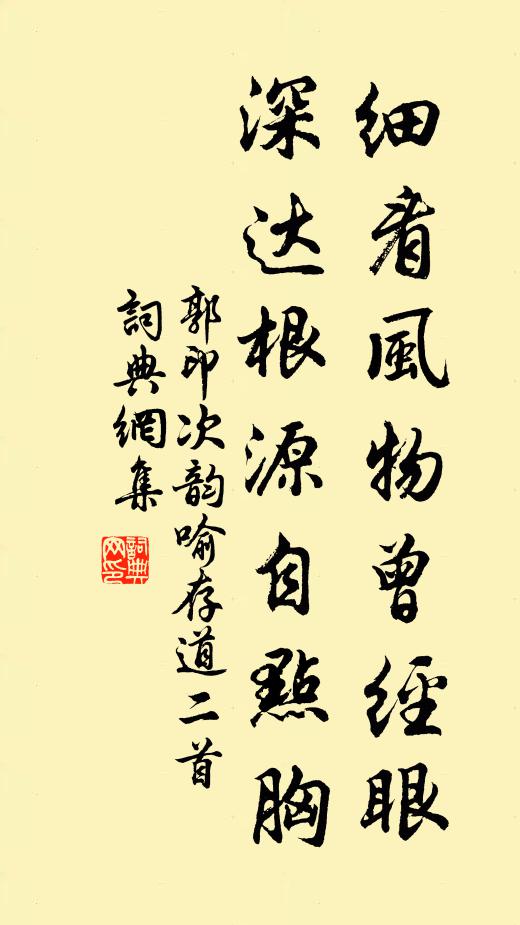 細看風物曾經眼
深达根源自點胸
郭印次韵喻存道二首
詞典網集
詞典網印